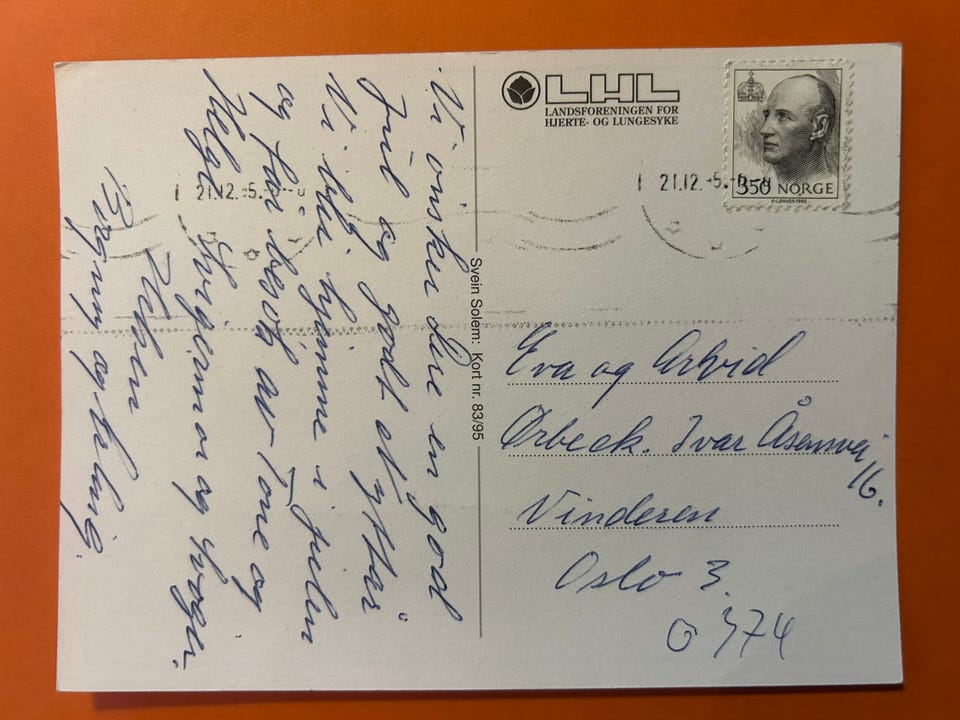 Vi ønsker dere en god
Jul og godt Nyttår
Vi blir hjemme i julen
og får besøk av Tone og
Helge Svigermor og svoger.
Hilsen
og
LHL
LANDSFORENINGEN FOR
HJERTE- OG LUNGESYKE
21.12.-5.
21.12.-5.
350 NORGE
Svein Solem: Kort nr. 83/95
Eva og Arvid
Ørbeck. Ivar Åsensvei
16.
Vinderen
Oslo 3.
0374